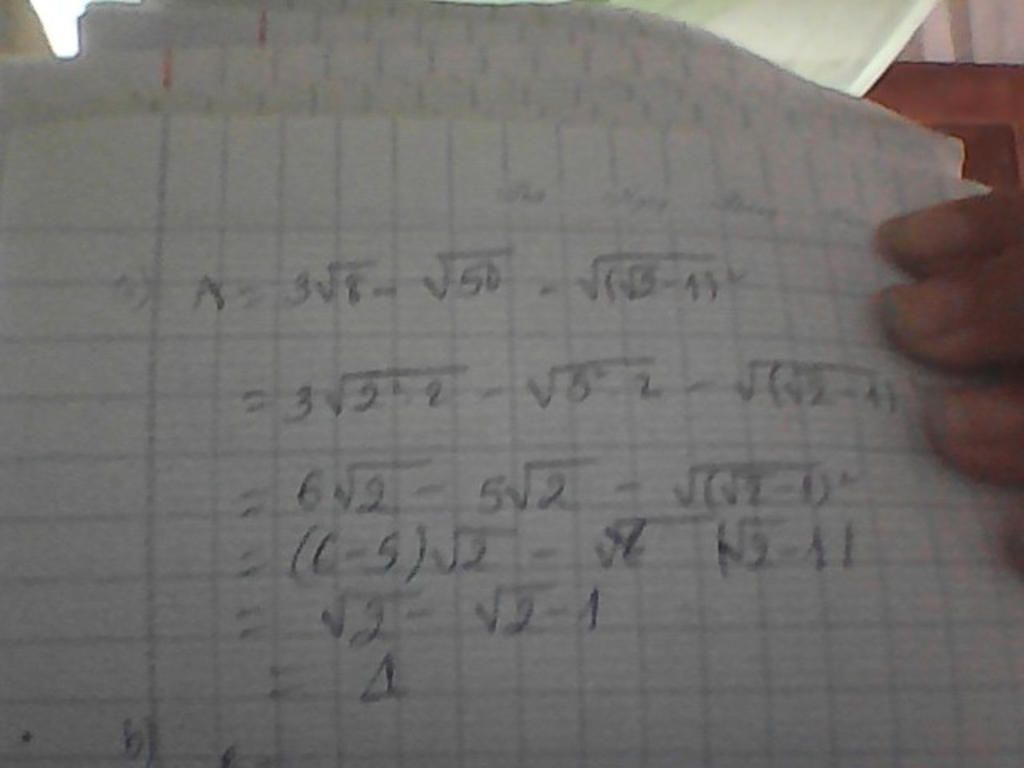 a) A = 3√8 - √50 - √(√2-1)²
= 3√2²·2 - √5²·2 - √(√2-1)
= 6√2 - 5√2 - √(√2-1)²
= (6-5)√2 - |√2-1|
= √2 - √2-1
= 1
b)